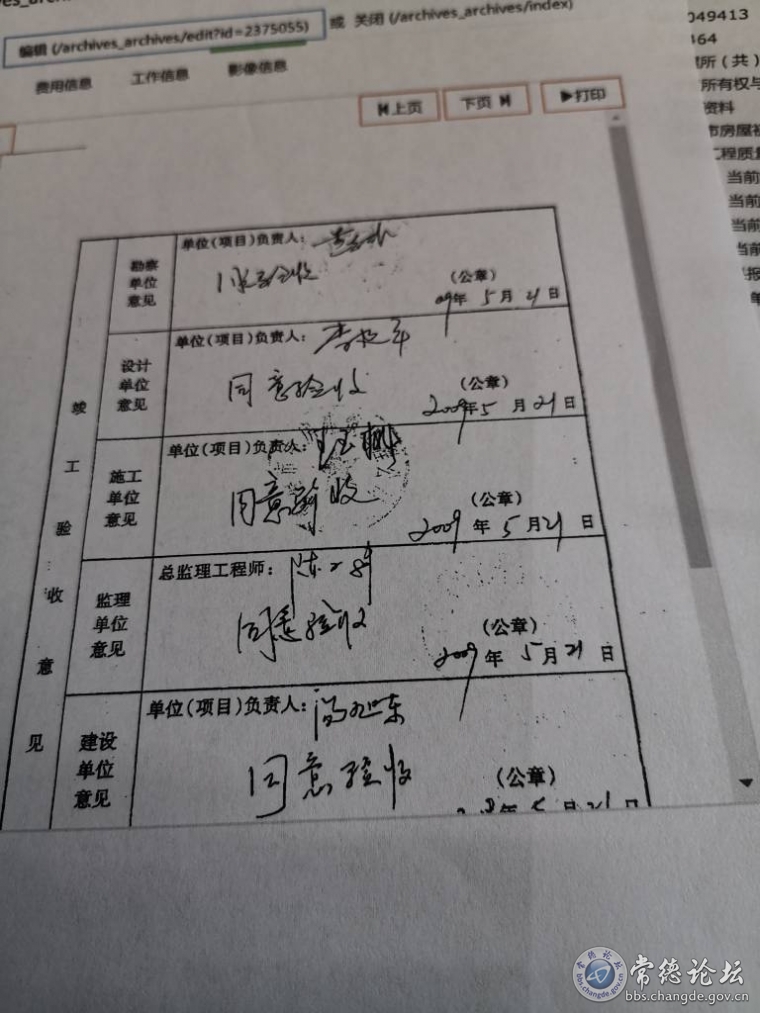 编辑 (/archives_archives/edit?id=2375055) 或 关闭 (/archives_archives/index)
费用信息 工作信息 影像信息
上页 下页 打印
049413
所（共）
所有权与
资料
市房屋
工程质量
当前
当前
当前
当前
竣工验收意见
勘察单位意见
单位(项目)负责人：
(公章)
09年 5月 21日
设计单位意见
单位(项目)负责人：
同意验收
(公章)
2009年5月21日
施工单位意见
单位(项目)负责人：
同意验收
(公章)
2009年5月21日
监理单位意见
总监理工程师：
同意验收
(公章)
2009年5月21日
建设单位意见
单位(项目)负责人：
同意验收
(公章)
常德论坛
bbs.changde.gov.cn